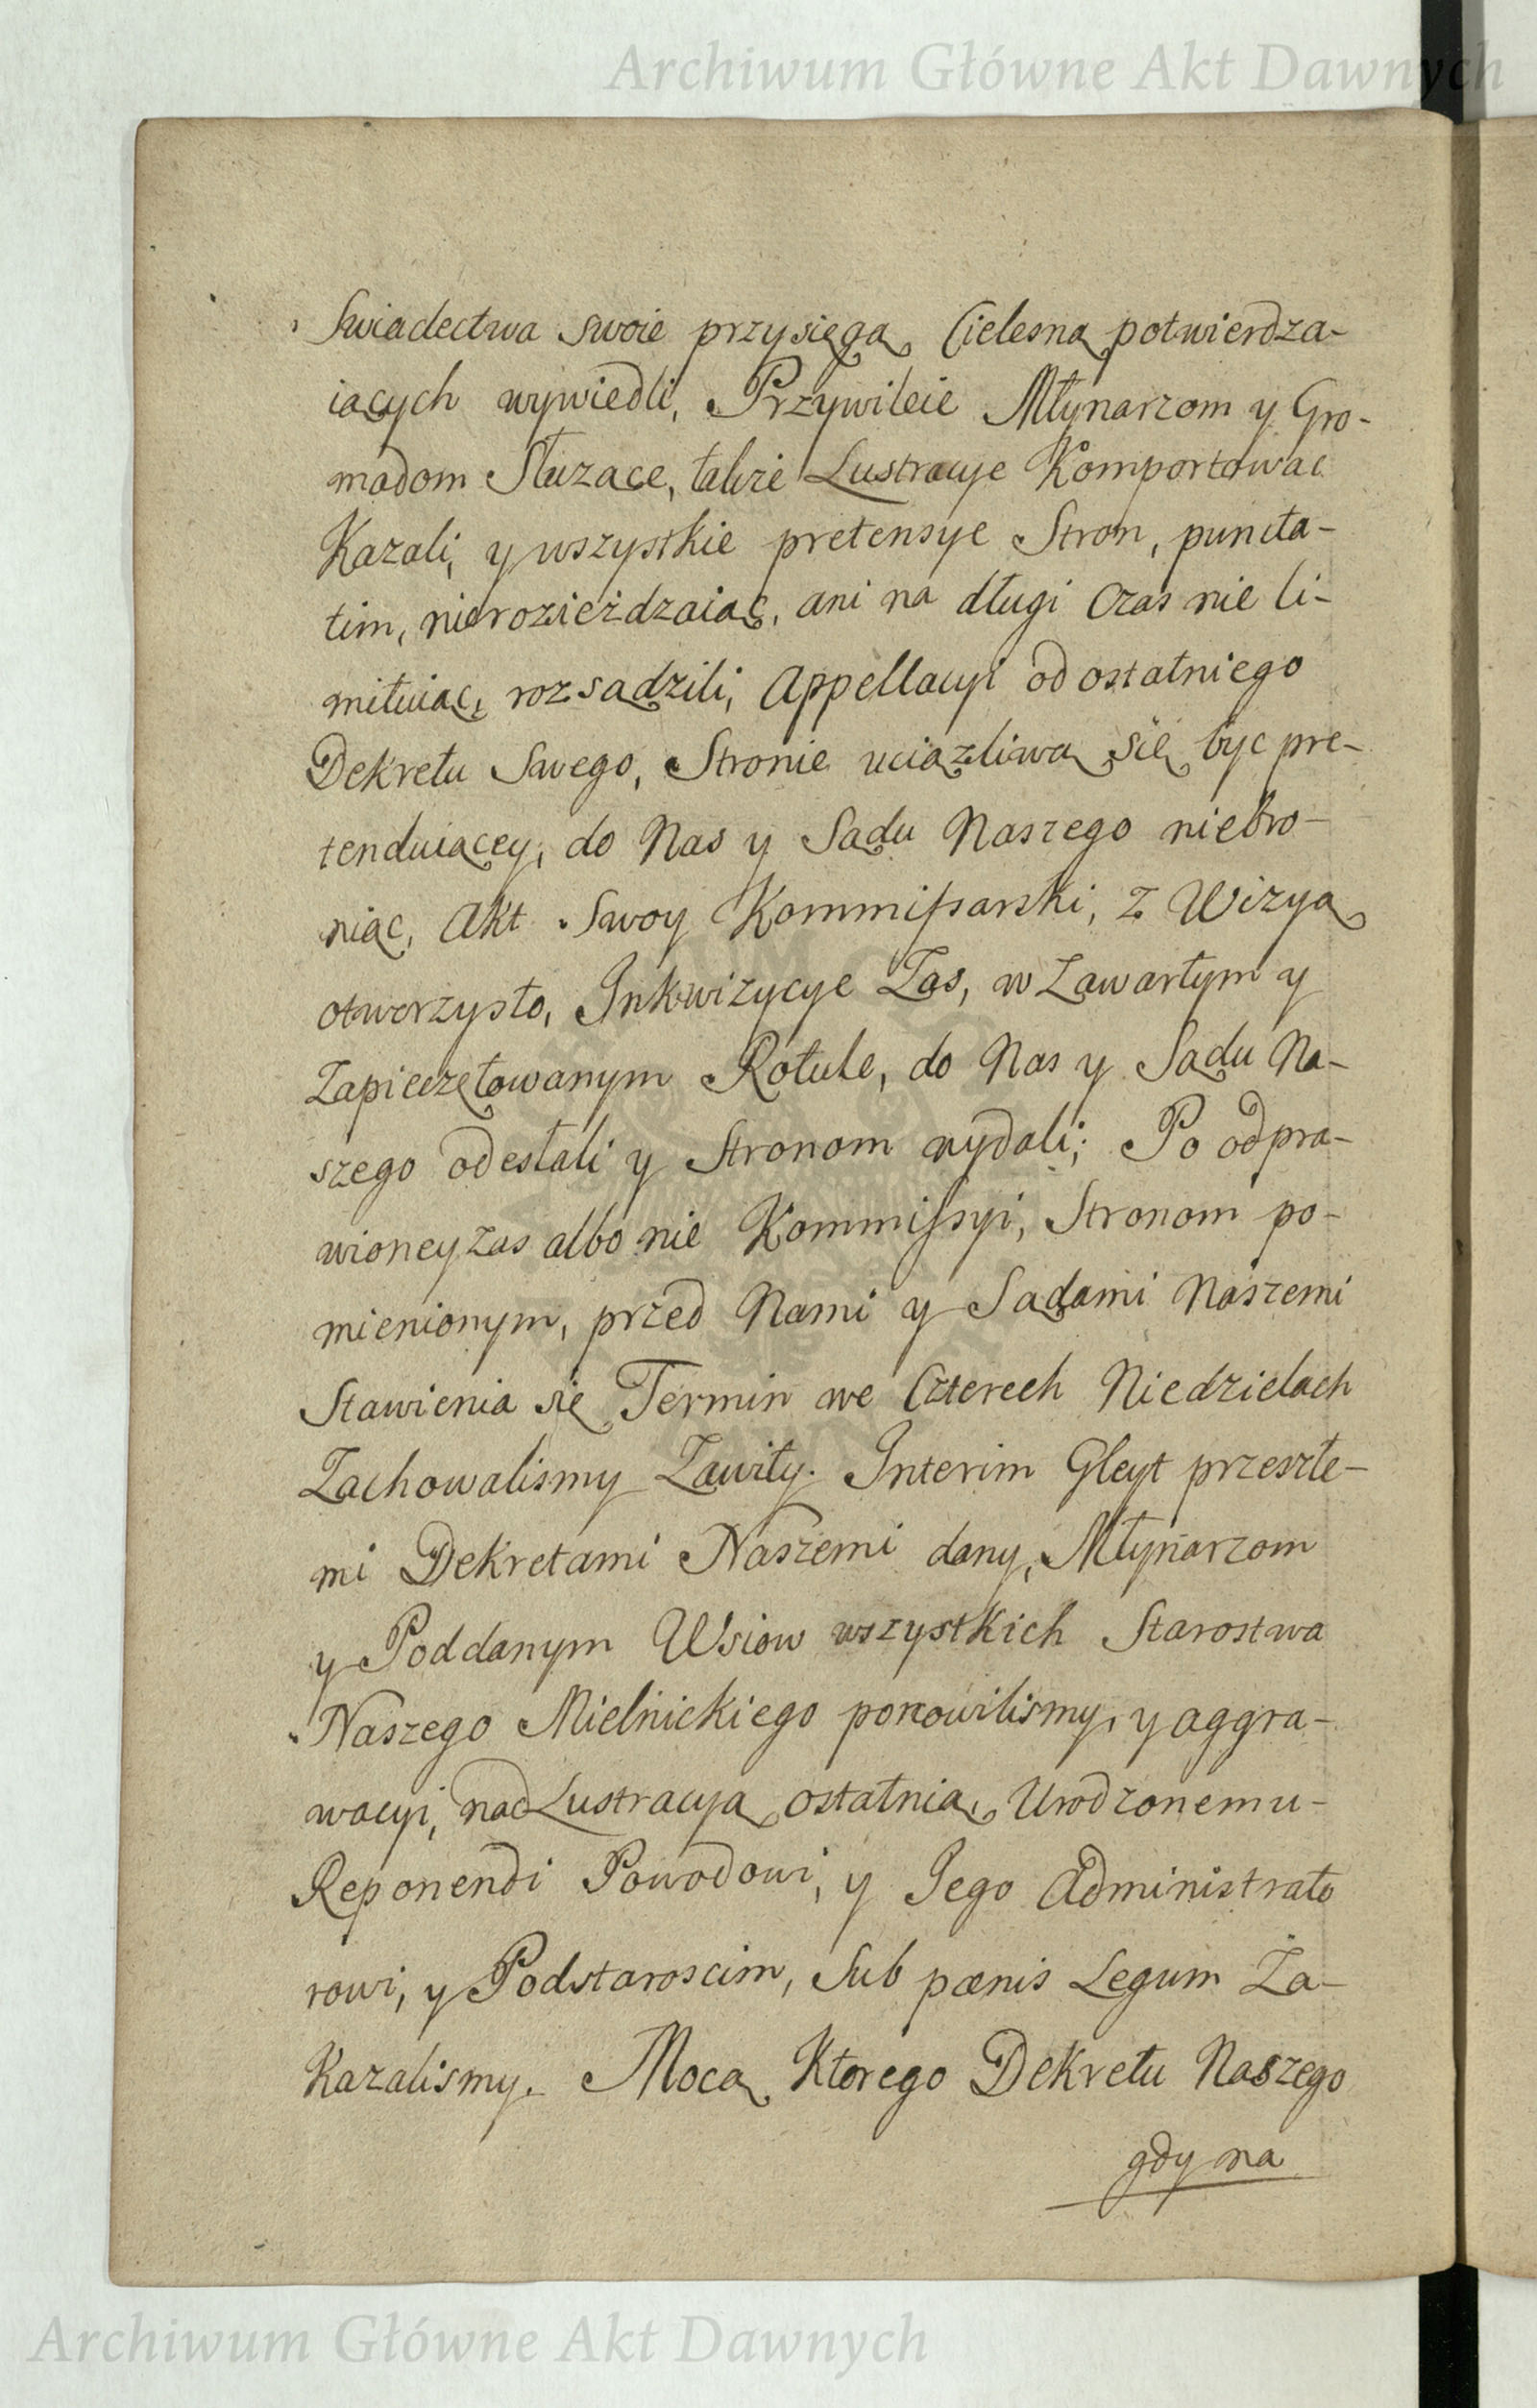 Archiwum Główne Akt Dawnych
Swiadectwa swoie przysięgą Cielesną potwierdza-
iących wywiedli, Przywileie Młynarzom y Gro-
madom Służące, także Lustracye Komportować
Kazali, y wszystkie pretensye Stron, puncta-
tim, nierozieżdzaiąc, ani na długi Czas nie li-
mituiąc, rozsądzili, Appellacyi od ostatniego
Dekretu Swego, Stronie uciązliwą się byc pre-
tenduiącey, do Nas y Sądu Naszego niebro-
niąc, Akt Swoy Kommissarski, z Wizyą
otworzysto, Inkwizycye Zas, w Zawartym y
Zapieczętowanym Rotule, do Nas y Sądu Na-
szego odesłali y Stronom wydali; Po odpra-
wioney zas albo nie Kommissyi, Stronom po-
mienionym, przed Nami y Sądami Naszemi
Stawienia się Termin we Czterech Niedzielach
Zachowalismy Zawity. Interim Gleyt przeszłe-
mi Dekretami Naszemi dany, Młynarzom
y Poddanym Wsiow wszystkich Starostwa
Naszego Mielnickiego ponowilismy, y aggra-
wacyi, nad Lustracyą ostatnią, Urodzonemu-
Reponendi Powodowi, y Jego Administrato
rowi, y Podstaroscim, Sub pœnis Legum Za-
Kazalismy. Mocą Ktorego Dekretu Naszego
gdy na
Archiwum Główne Akt Dawnych